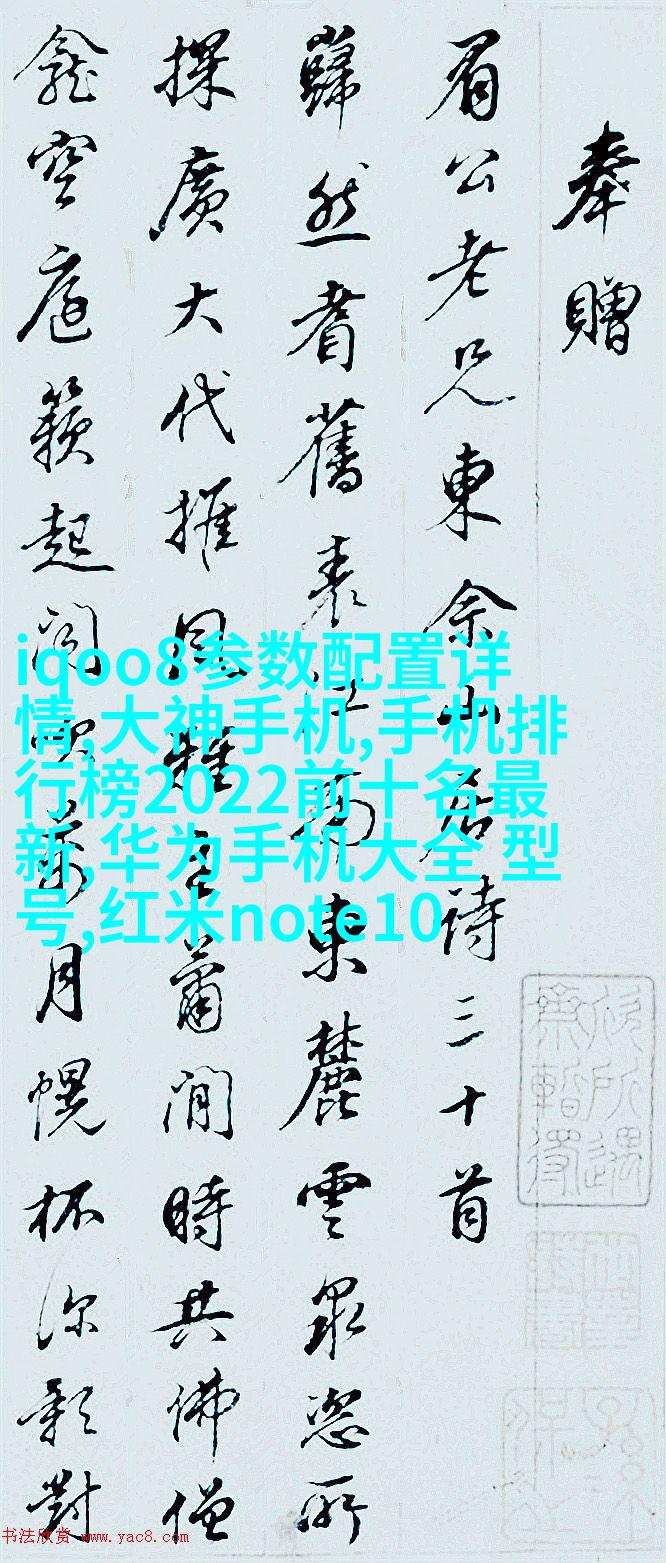 奉贈
眉公老兄東佘山居詩三十首
巋然耆舊表江南東麓雲泉恣所
探廣大代推風雅主蕭閒時共佛僧
龕空庭籟起閒吹葉月幌杯深影對
iqoo8参数配置详
情,大神手机,手机排
行榜2022前十名最
新,华为手机大全 型
号,红米note10
书法欣赏 www.yac8.com